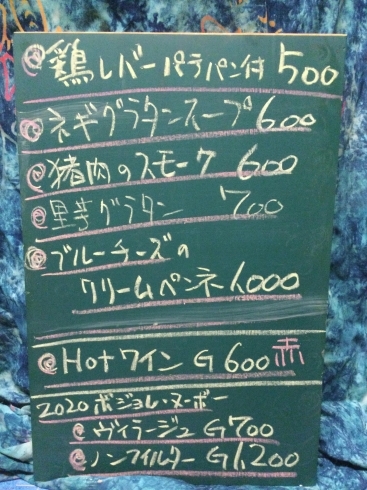 鶏レバーパテパン付 500
ネギグラタンスープ 600
猪肉のスモーク 600
里芋グラタン 700
ブルーチーズの
クリームペンネ 1,000
Hotワイン G 600 赤
2020 ボジョレ・ヌーボー
ヴィラージュ G 700
ノンフィルター G 1,200